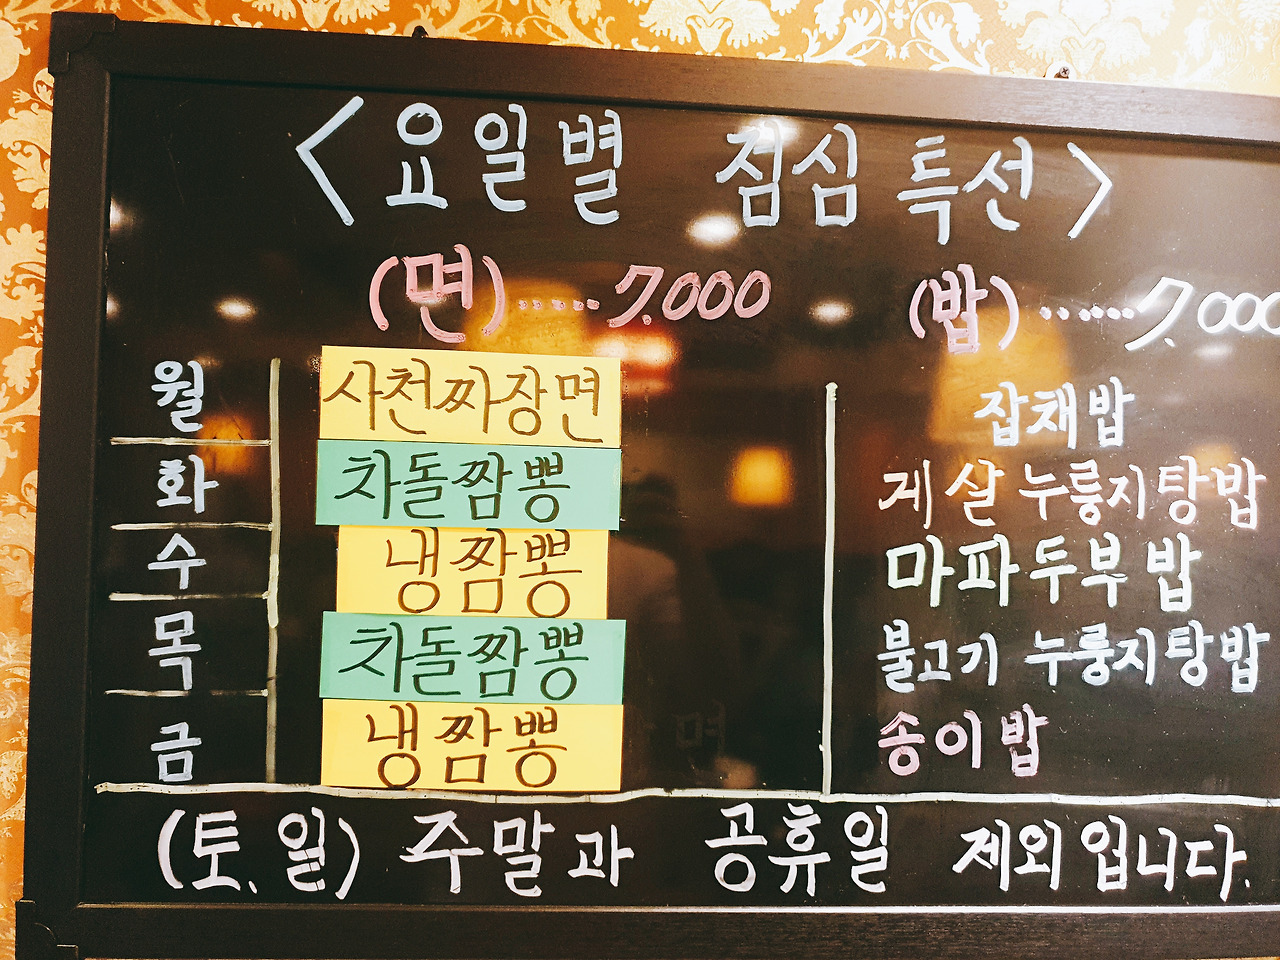 <요일별 점심 특선>
(면)......7.000 (밥)......7.000
월 사천짜장면 잡채밥
화 차돌짬뽕 게살 누룽지탕밥
수 냉짬뽕 마파두부밥
목 차돌짬뽕 불고기 누룽지탕밥
금 냉짬뽕 송이밥
(토.일) 주말과 공휴일 제외입니다.